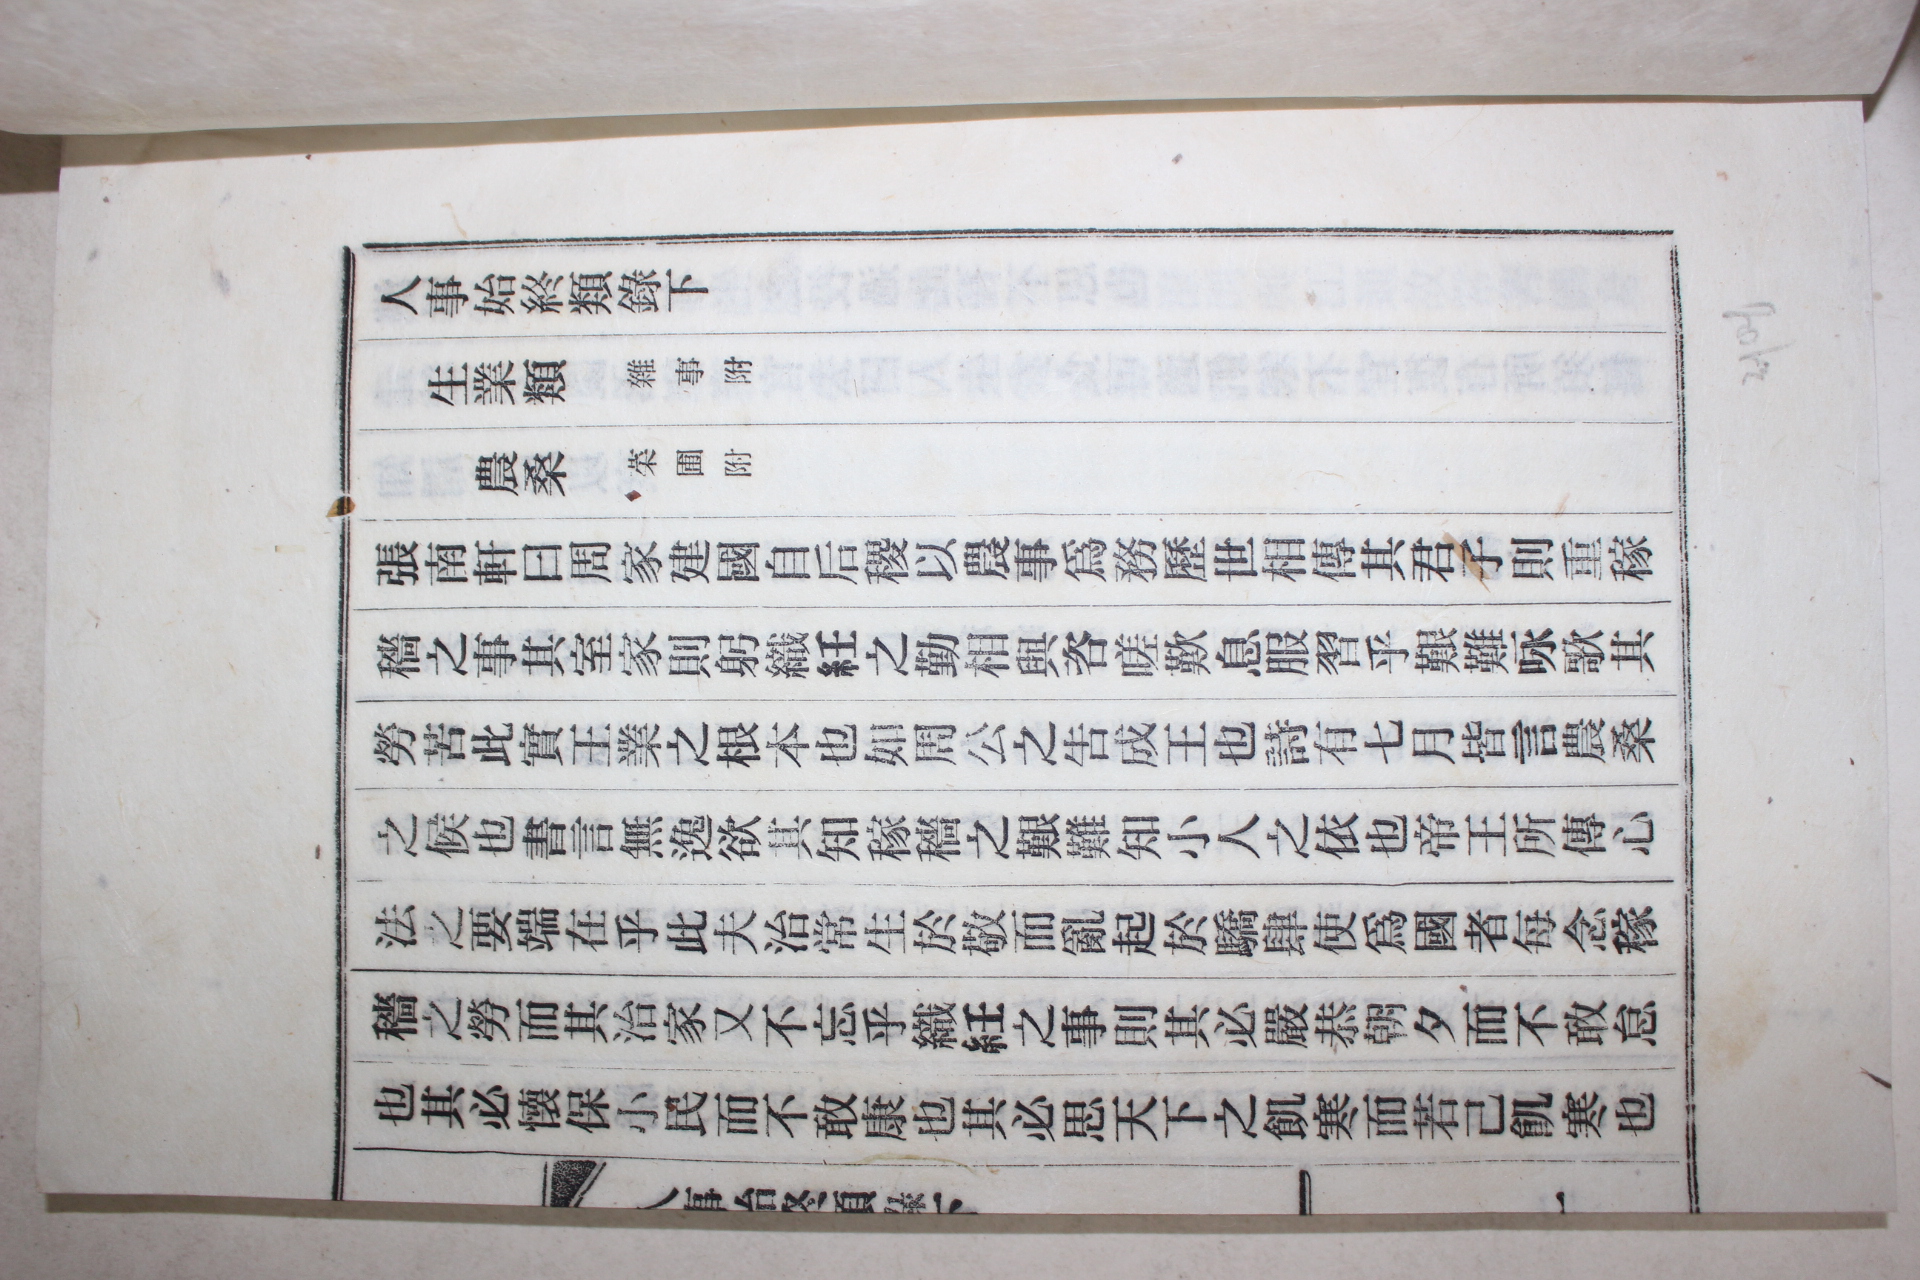 人事始終類錄下
生業類 雜事附
農桑 菜圃附
張南軒曰周家建國自后稷以農事爲務歷世相傳其君子則重稼
穡之事其室家則躬織紝之勤相與咨嗟歎息服習乎艱難咏歌其
勞苦此實王業之根本也如周公之告成王也詩有七月皆言農桑
之候也書言無逸欲其知稼穡之艱難知小人之依也帝王所傳心
法之要端在乎此夫治常生於敬而亂起於驕肆使爲國者每念稼
穡之勞而其治家又不忘乎織紝之事則其必嚴恭朝夕而不敢怠
也其必懷保小民而不敢康也其必思天下之飢寒而若己飢寒也
人事始終類錄下 一